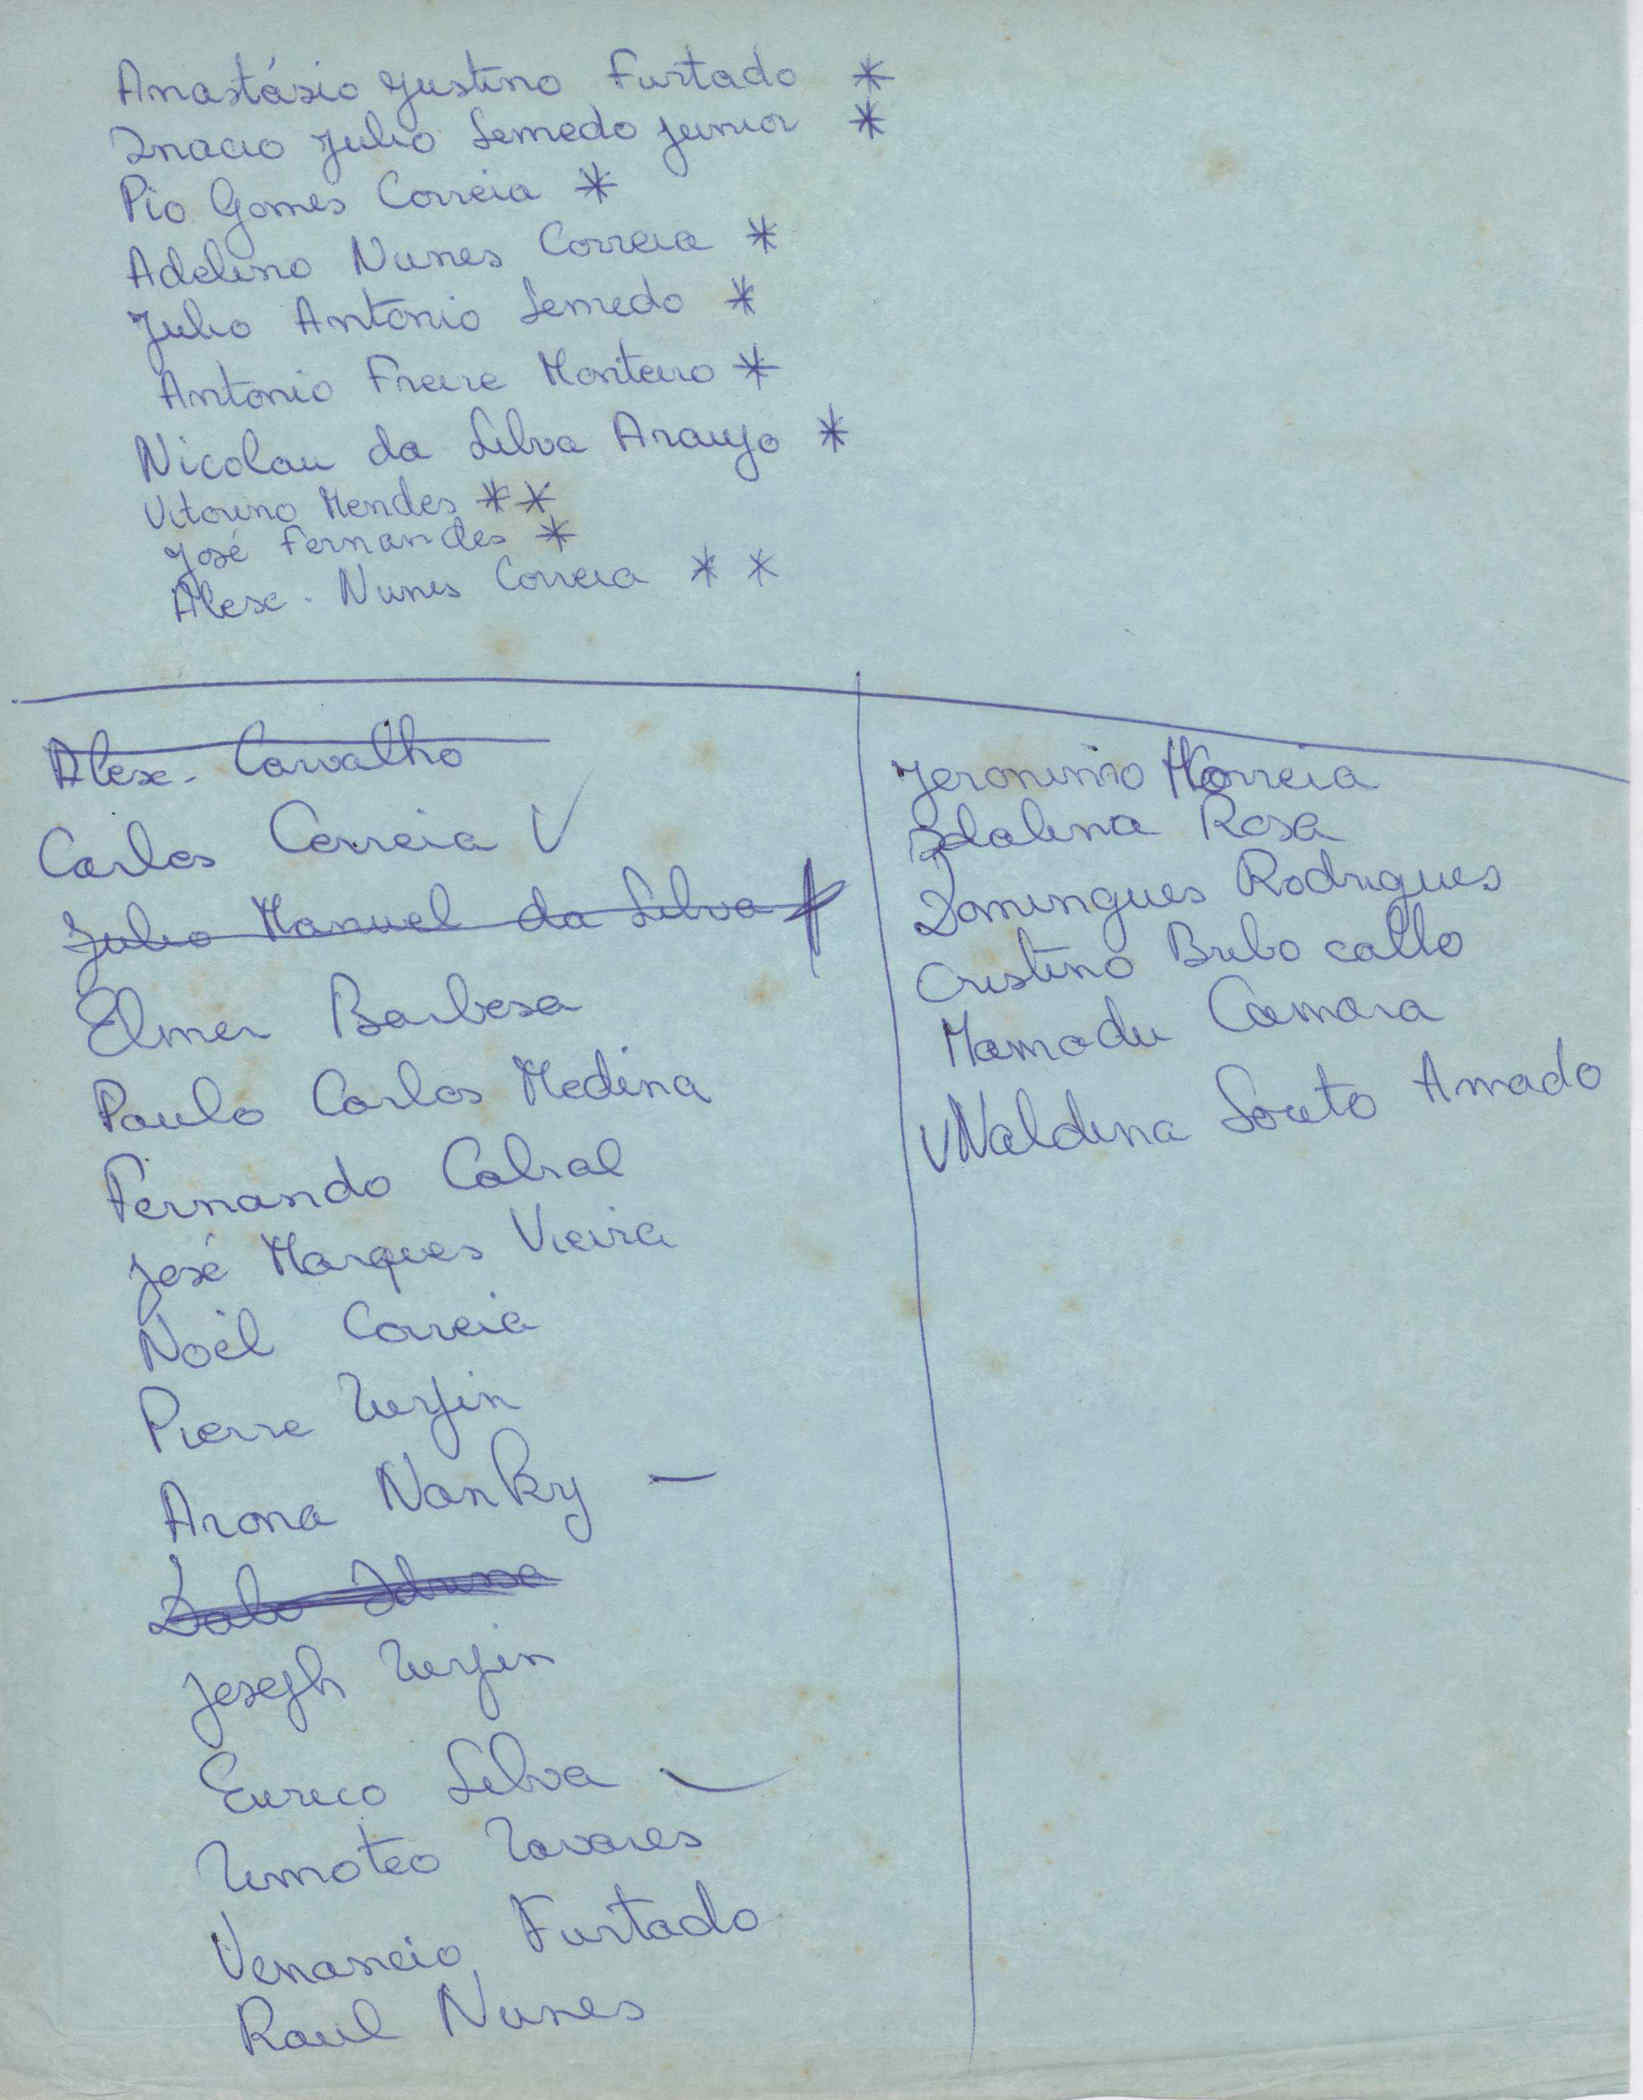 Anastásio Justino Furtado *
Inacio Julio Semedo Junior *
Pio Gomes Correia *
Adelino Nunes Correia *
Julio Antonio Semedo *
Antonio Freire Monteiro *
Nicolau da Silva Araujo *
Vitorino Mendes **
José Fernandes *
Alex. Nunes Correia * *
Alex. Carvalho
Carlos Correia V
Julio Manuel da Silva
Elmer Barbosa
Paulo Carlos Medina
Fernando Cabral
José Marques Vieira
Noël Correia
Pierre Turpin
Arona Nanky —
Joseph Turpin
Eurico Silva
Timoteo Tavares
Venancio Furtado
Raul Nunes
Jeronimo Correia
Idalina Rosa
Domingues Rodrigues
Cristino Bribo callo
Mamadu Camara
Valdina Souto Amado